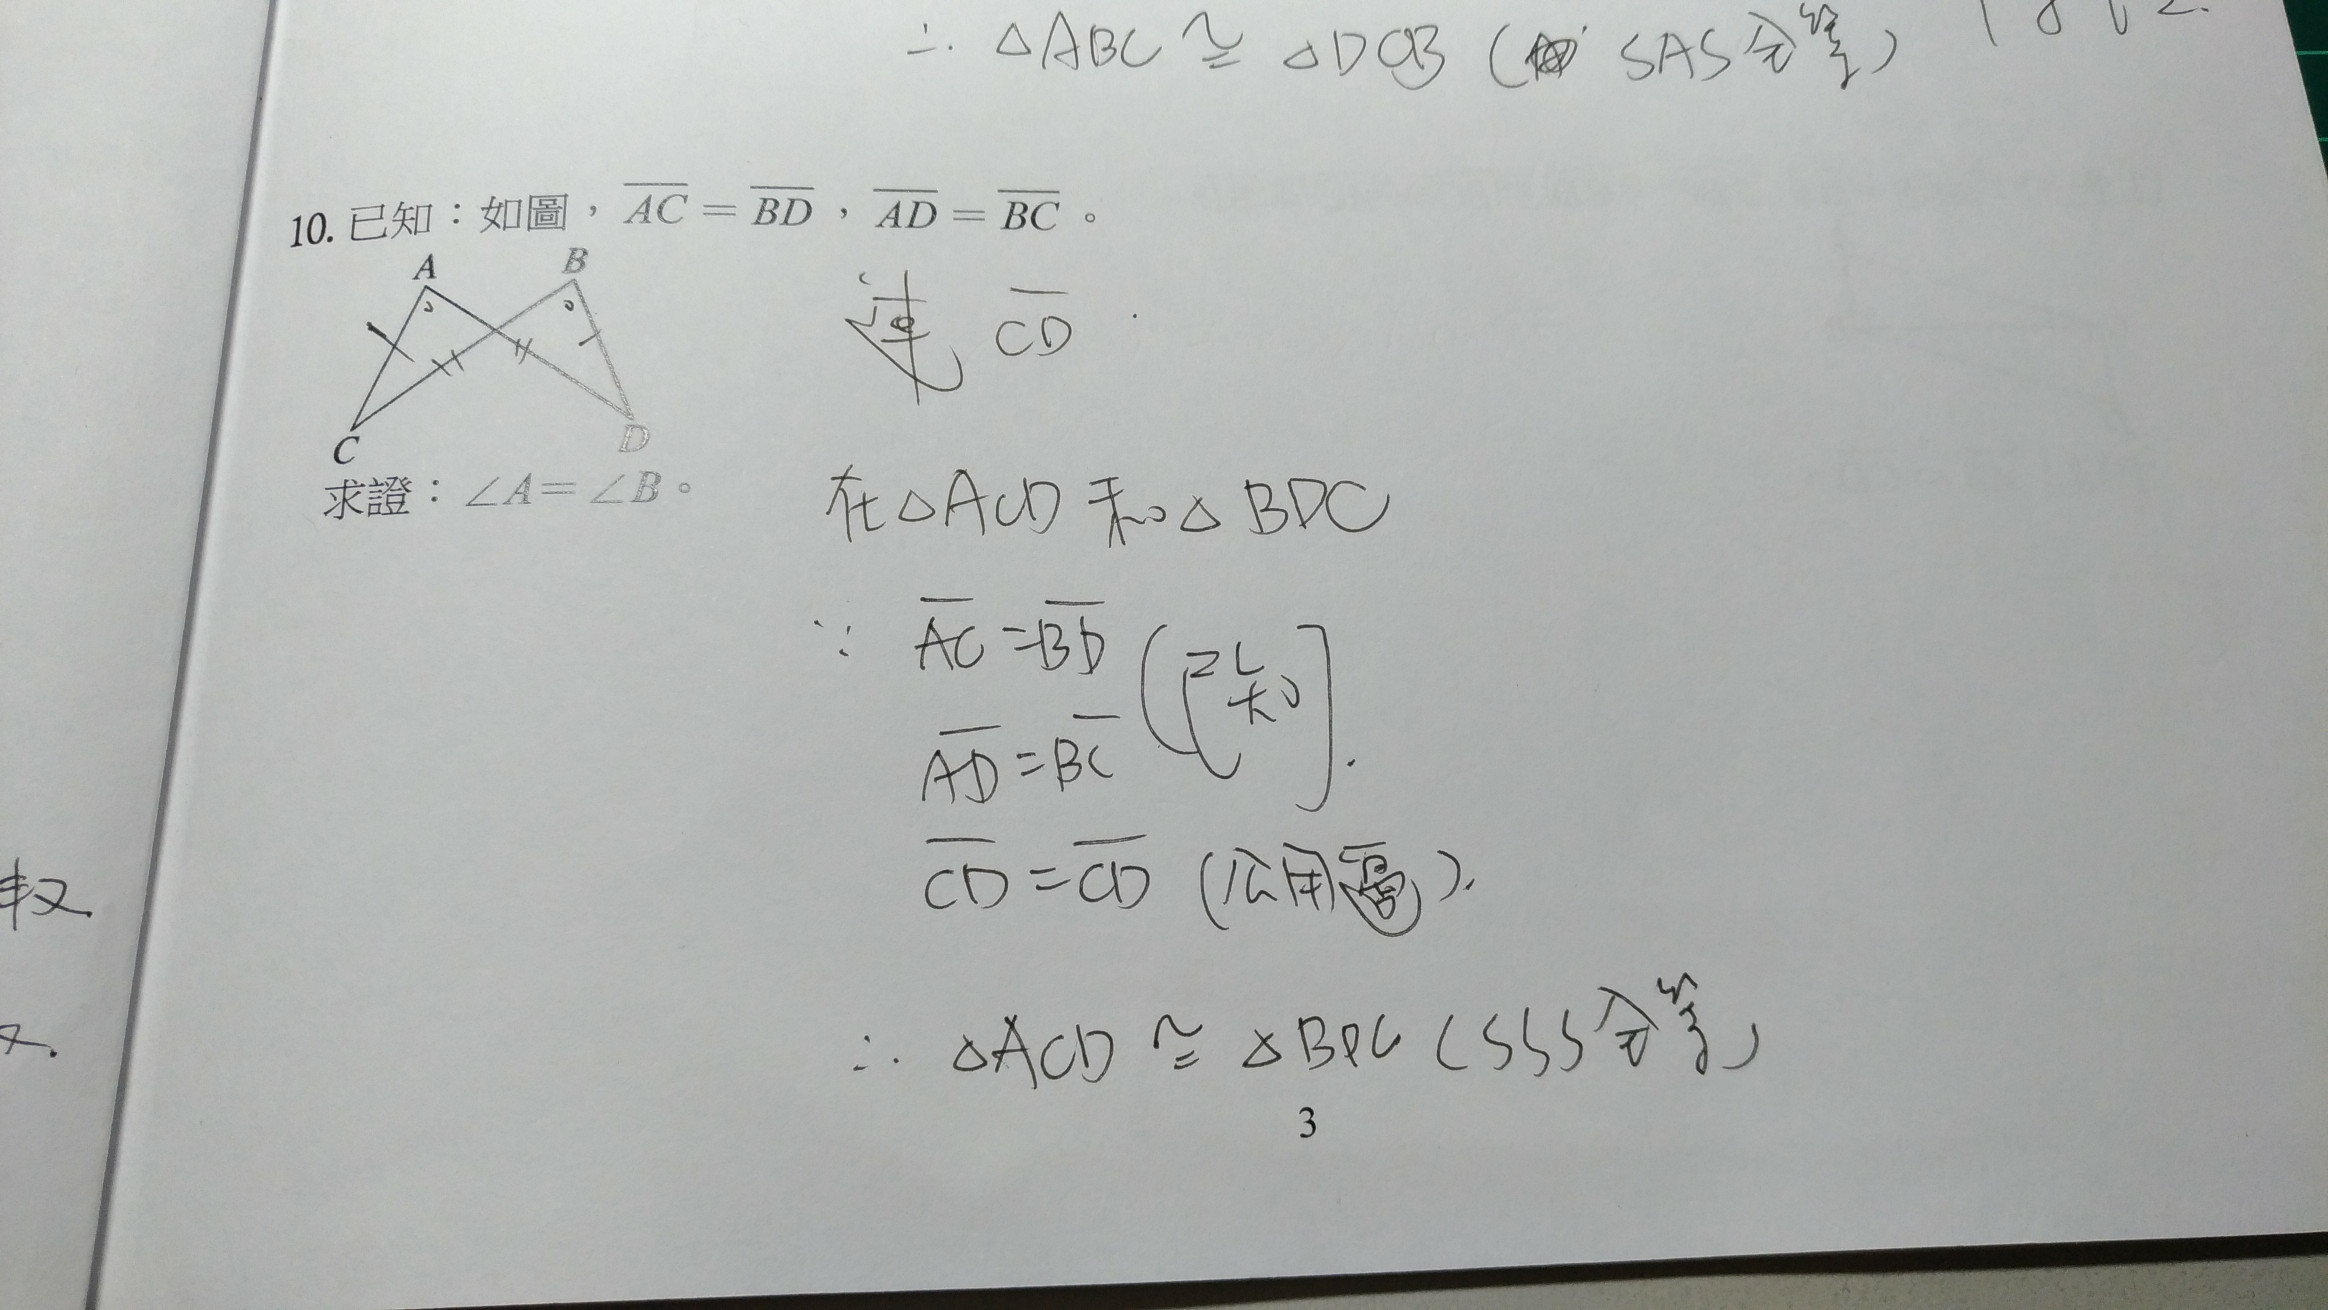 ∴ △ABC ≅ △DCB ( SAS全等)
10. 已知：如圖，AC＝BD，AD＝BC。
A B
C D
求證：∠A＝∠B。
連 CD
在△ACD和△BDC
∵ AC=BD
(已知)
AD=BC
CD=CD (公用邊).
∴ △ACD ≅ △BDC (SSS全等)
3